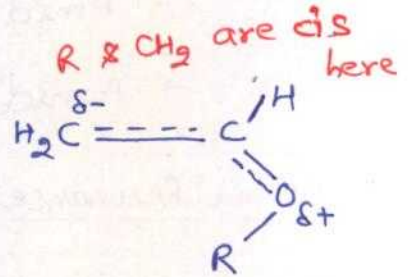 R & CH2 are cis
here
δ-
H2C C H
O δ+
R